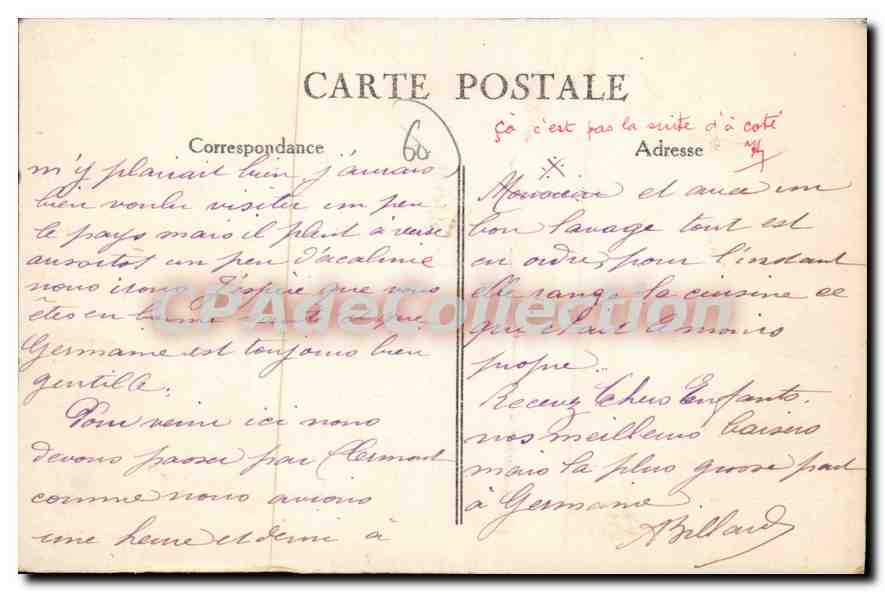 CARTE POSTALE
Correspondance
60
m'y plairait bien, j'aurais
bien voulu visiter un peu
le pays mais il pleut à verse
aussitôt un peu d'acalmie
nous irons. J'espère que vous
êtes en bonne santé et que
Germaine est toujours bien
gentille.
Pour venir ici nous
devons passer par Clermont
comme nous avions
une heure et demi à
çà c'est pas la suite d'à coté
Adresse
et avec un
bon lavage tout est
en ordre, pour l'instant
elle range la cuisine ce
qui était le moins
propre..
Recevez Chers Enfants.
nos meilleurs baisers
mais la plus grosse part
à Germaine
ABillard
CPAdeCollection.com